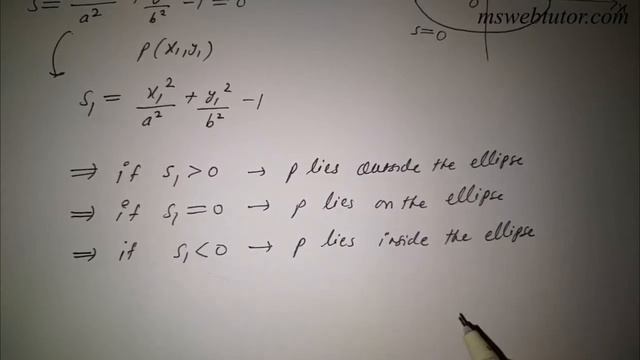 S = x²/a² + y²/b² - 1 = 0
mswebtutor.com
S = 0
P(x₁,y₁)
S₁ = x₁²/a² + y₁²/b² - 1
⇒ if S₁ > 0 → P lies outside the ellipse
⇒ if S₁ = 0 → P lies on the ellipse
⇒ if S₁ < 0 → P lies inside the ellipse